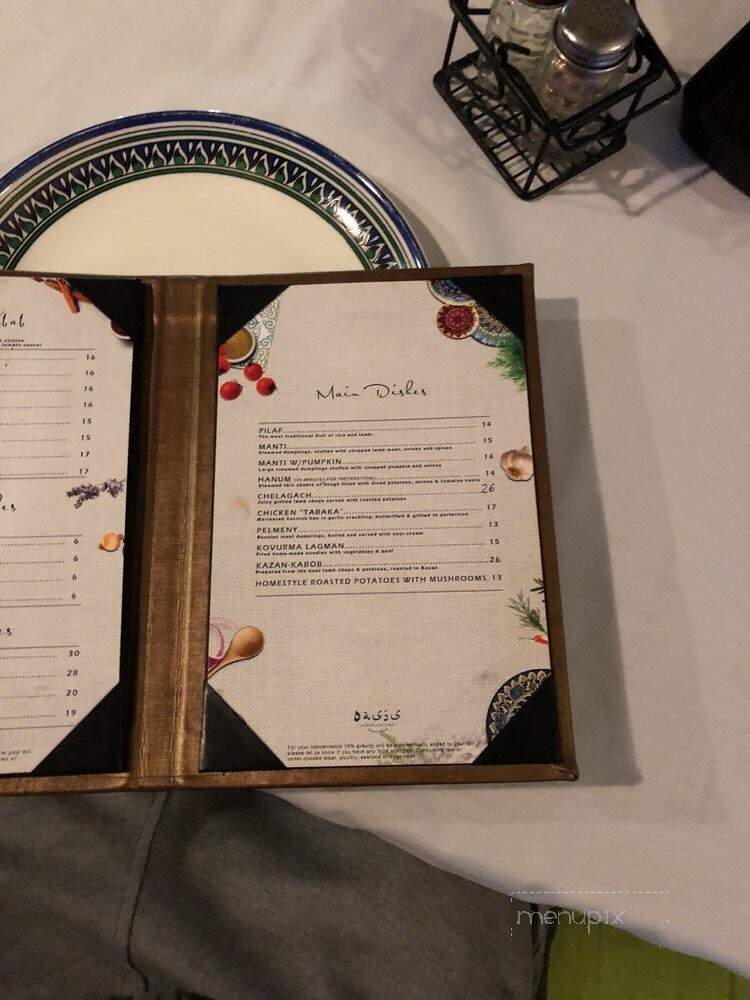 16
16
16
16
15
15
17
17
6
6
6
6
30
28
20
19
Main Dishes
PILAF 14
The most traditional dish of rice and lamb.
MANTI 15
Steamed dumplings, stuffed with chopped lamb meat, onions and spices
MANTI W/PUMPKIN 14
Large steamed dumplings stuffed with chopped pumpkin and onions
HANUM (45 MINUTES FOR PREPARATION) 14
Steamed thin sheets of dough lined with diced potatoes, onions & tomatoe sauce
CHELAGACH 26
Juicy grilled lamb chops served with roasted potatoes
CHICKEN "TABAKA" 17
Marinated Cornish hen in garlic crackling, butterflied & grilled to perfection
PELMENY 13
Russian meat dumplings, boiled and served with sour cream
KOVURMA LAGMAN 15
Fried home-made noodles with vegetables & beef
KAZAN-KABOB 26
Prepared from the best lamb chops & potatoes, roasted in Kazan
HOMESTYLE ROASTED POTATOES WITH MUSHROOMS. 13
oasis
For your convenience 18% gratuity will be automatically added to your bill
please let us know if you have any food allergies. Consuming raw or
under-cooked meat, poultry, seafood or eggs
menupix